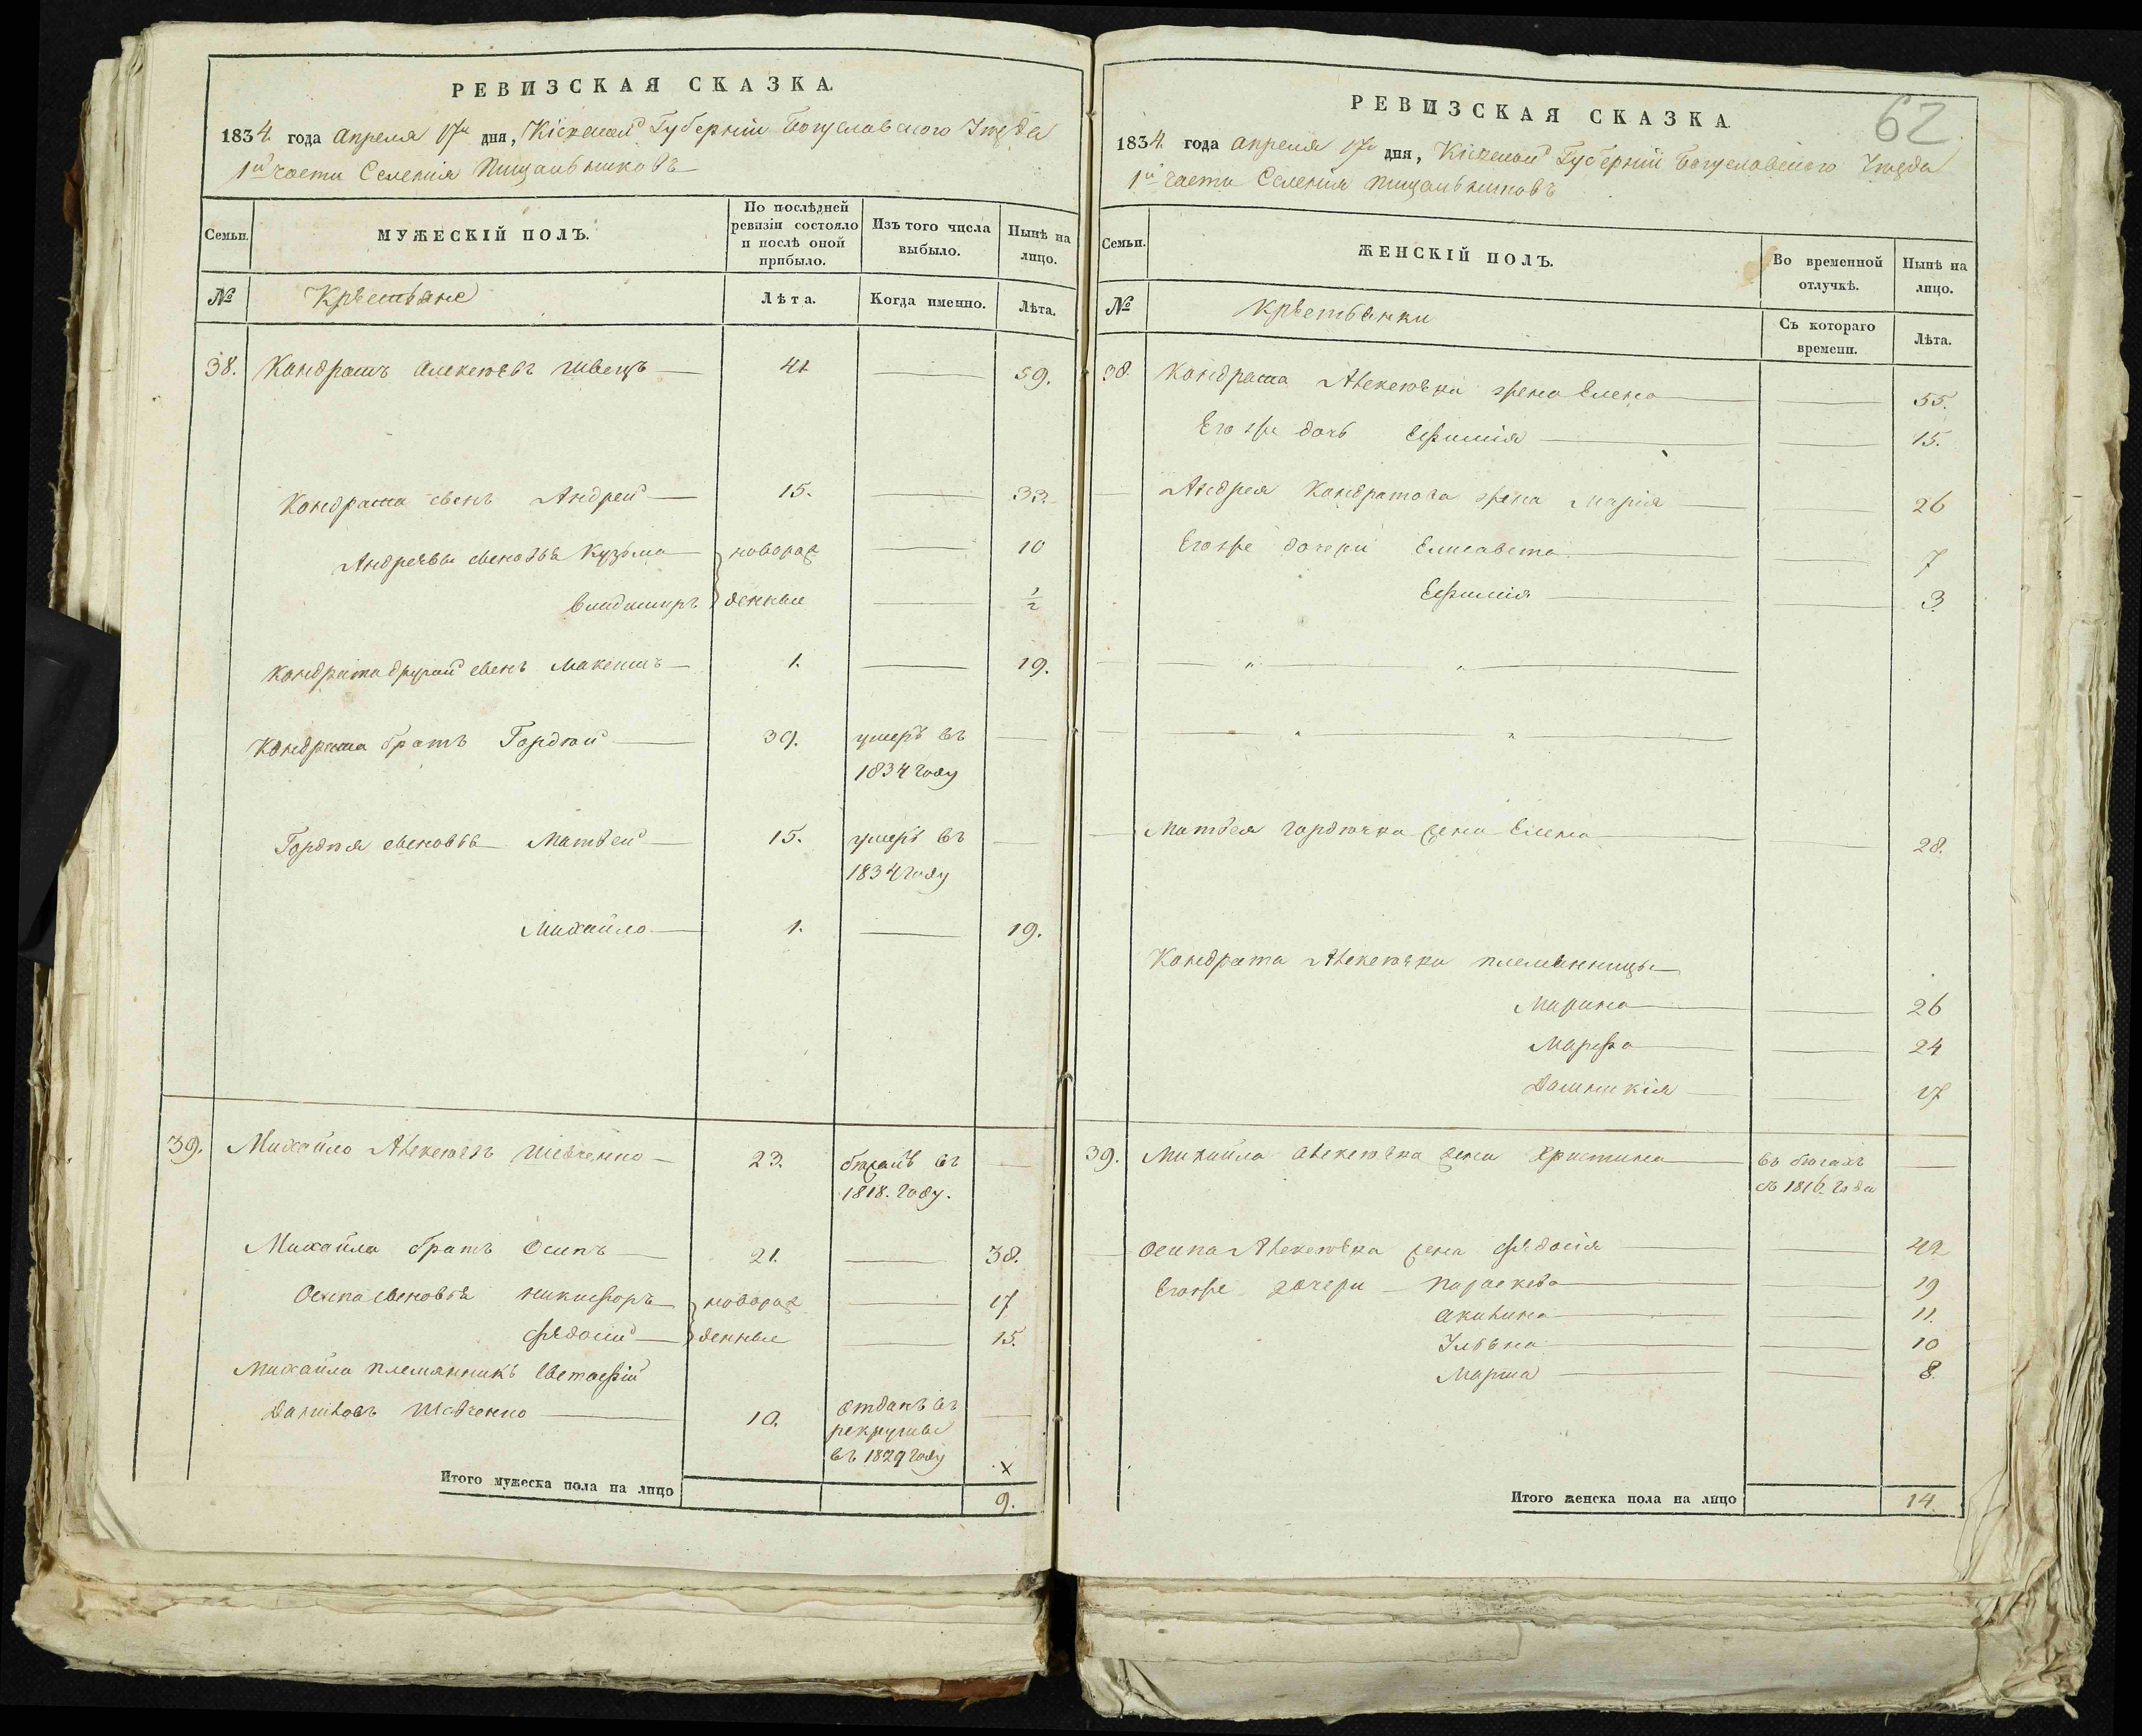 РЕВИЗСКАЯ СКАЗКА.
1834. года Апреля 17го дня, Кіевской Губерніи Богуславского Уезда
1й части Селенія Пищальниковъ
Семьи.
МУЖЕСКІЙ ПОЛЪ.
По послѣдней ревизіи состояло и послѣ оной прибыло.
Изъ того числа выбыло.
Нынѣ на лицо.
№
Крестьяне
Лѣта.
Когда именно.
Лѣта.
38. Кондратъ Алексеевъ Швецъ 41 59.
Кондрата сынъ Андрей 15. 33.
Андреевы сыновья Кузьма новорож 10
Владимиръ денные 1/2
Кондрата другий сынъ Максимъ 1. 19.
Кондрата братъ Гордѣй 39. умеръ въ
1834 году
Гордѣя сыновья Матвей 15. умеръ въ
1834 году
Михайло 1. 19.
39. Михайло Алексеевъ Шевченко 23. бежалъ въ
1818. году.
Михайла братъ Осипъ 21. 38.
Осипа сыновья Никифоръ новорож 17
Федосій денные 15.
Михайла племянникъ Евстафій
Даниловъ Шевченко 10. отданъ въ
рекруты
въ 1829 году
х
Итого мужеска пола на лицо 9.
РЕВИЗСКАЯ СКАЗКА
62
1834. года Апреля 17го дня, Кіевской Губерній Богуславского Уезда
1й части Селенія Пищальниковъ
Семьи.
ЖЕНСКІЙ ПОЛЪ.
Во временной отлучкѣ.
Нынѣ на лицо.
№
Крестьянки
Съ котораго времени.
Лѣта.
38. Кондрата Алексеева жена Елена 55.
Его же дочь Ефимія 15.
Андрея Кондратова жена Марія 26
Его же дочери Елисавета 7
Ефимія 3
Матвея Гордеева жена Елена 28.
Кондрата Алексеева племянницы
Марина 26
Марфа 24
Домникія 17
39. Михайла Алексеева жена Христина въ бегахъ
съ 1816 года
Осипа Алексеева жена Федосія 42
Его же дочери Параскева 19
Акилина 11.
Ульяна 10
Марта 8.
Итого женска пола на лицо 14.